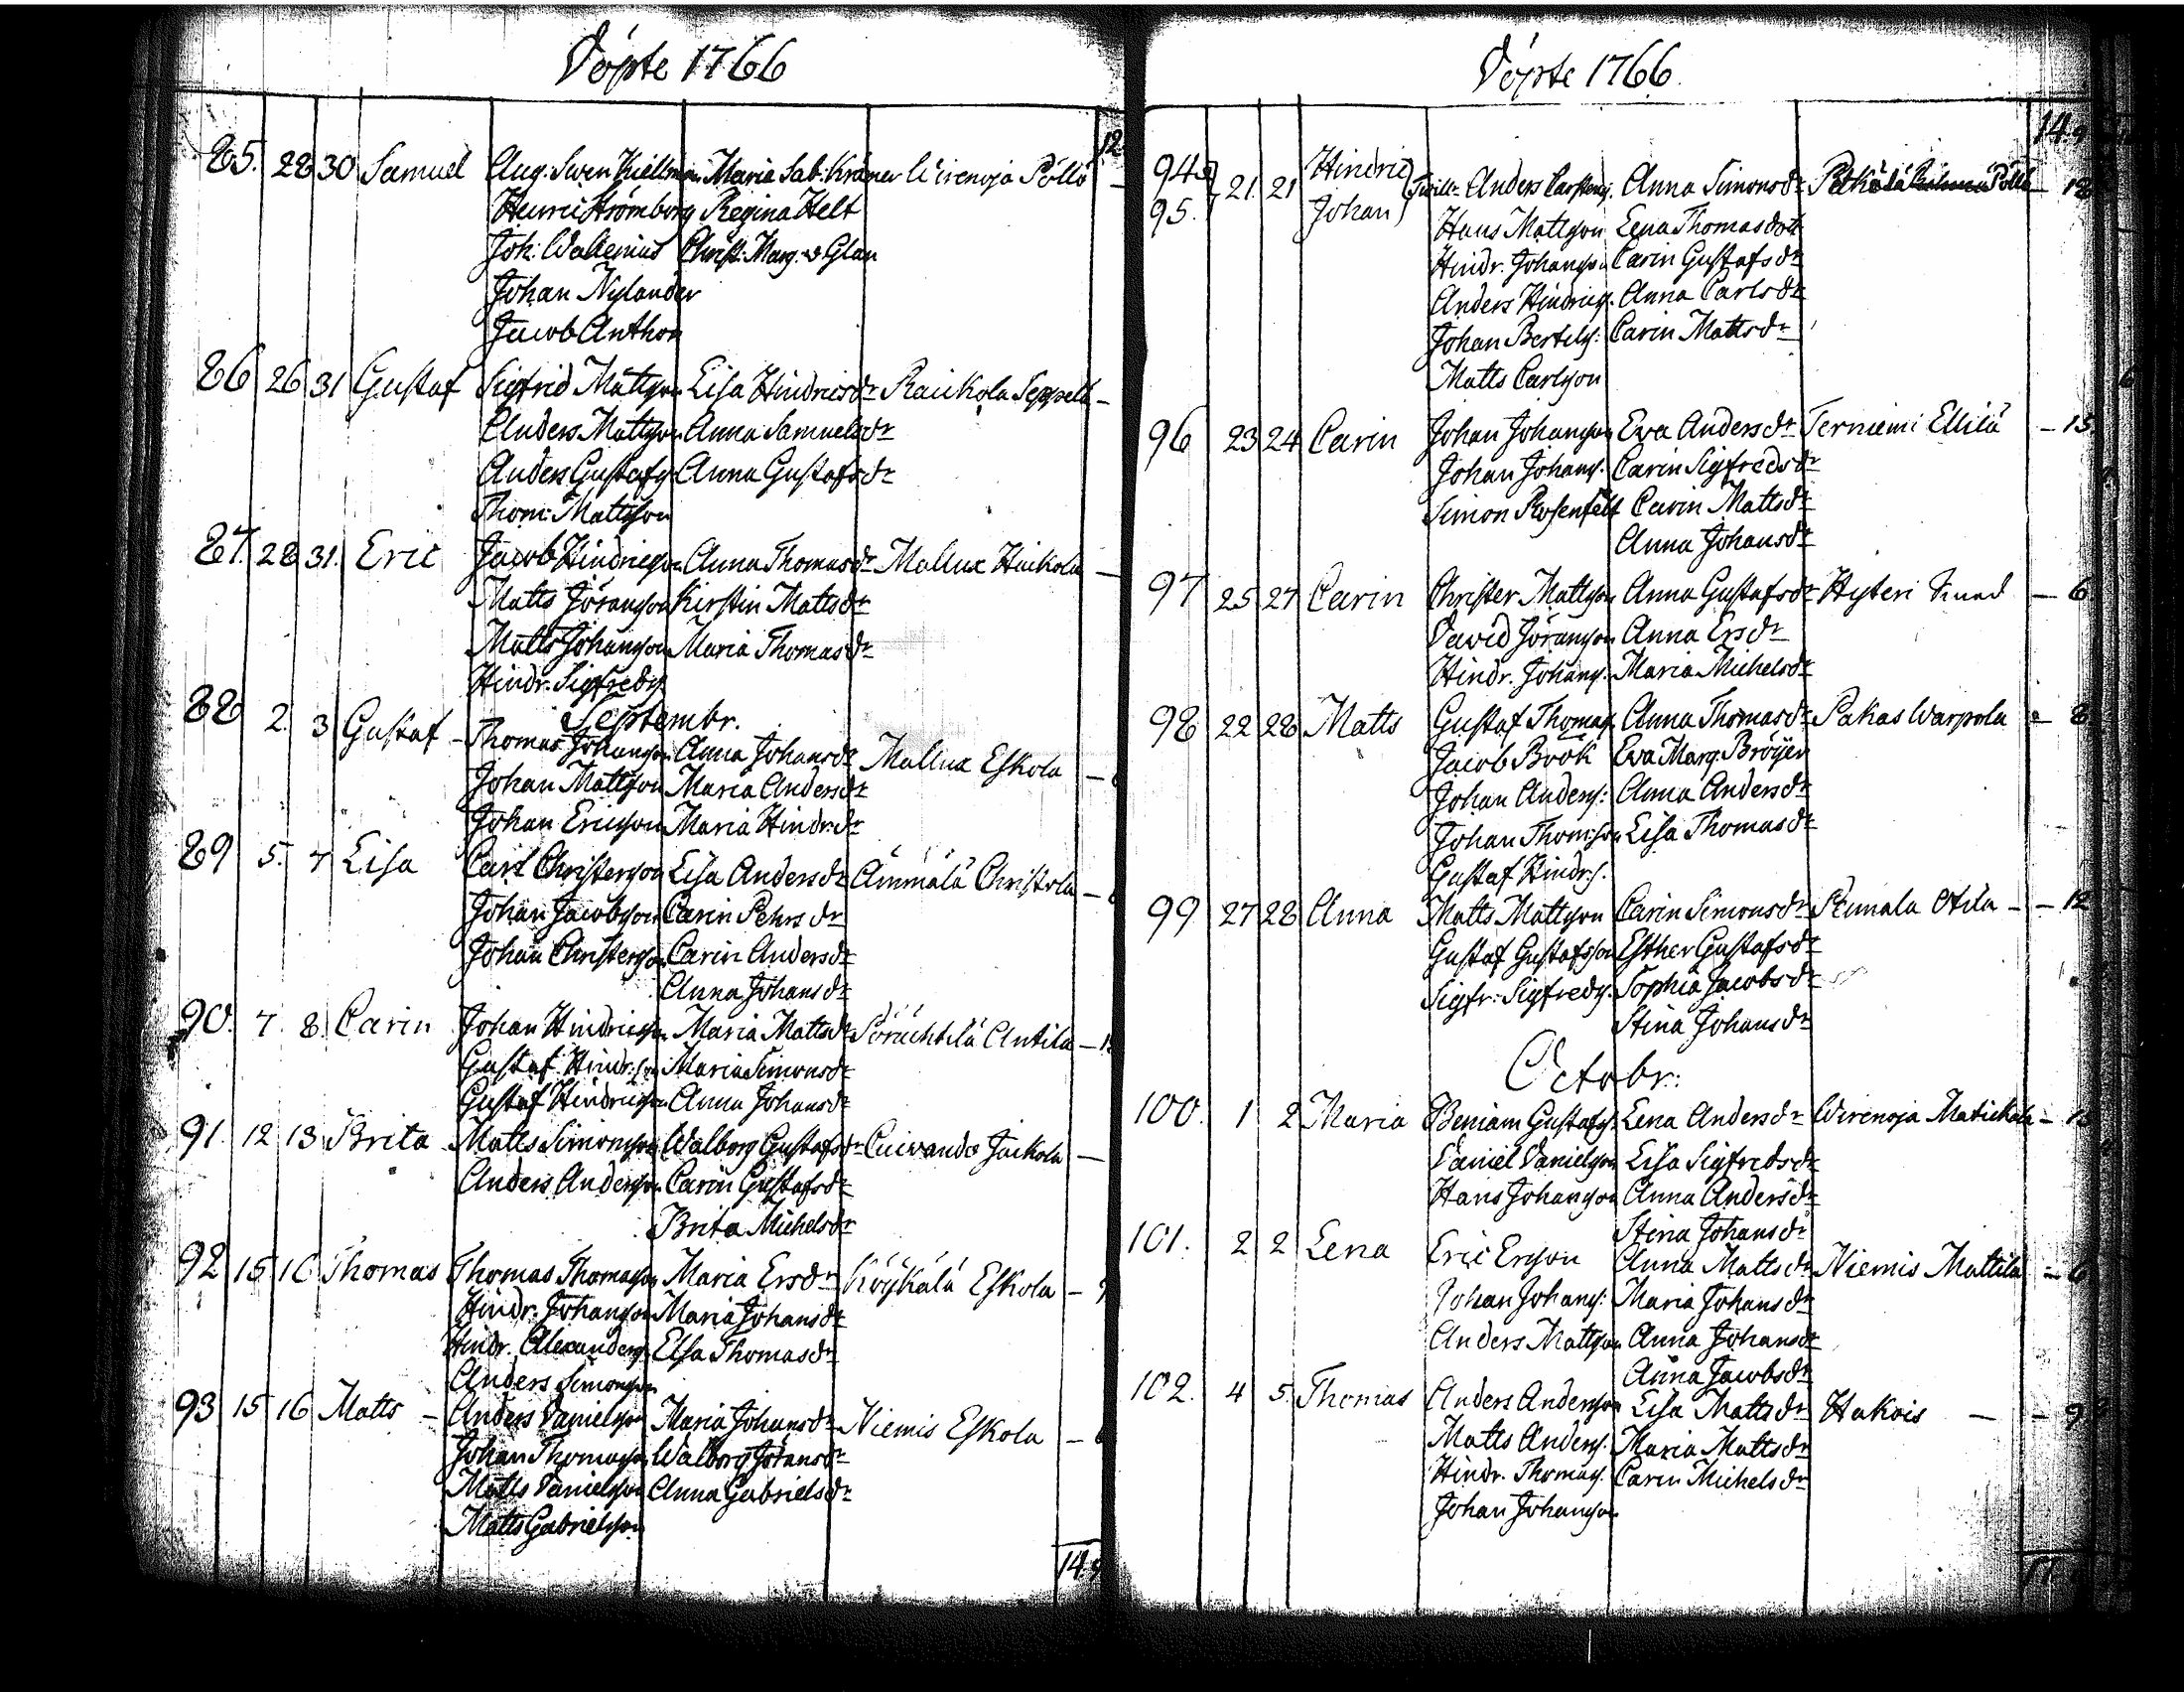 Döpte 1766
12
85. 28 30 Samuel Aug. Swen Kiellman Maria Sab: Kräner Wirenoja Pöllö –
Henric Strömborg Regina Helt
Joh: Wallenius Christ: Marg: v Glan
Johan Nylander
Jacob Anthon
86 26 31 Gustaf Sigfrid Mattson Lisa Hindricsdr Raickola Seppelä –
Anders Mattson Anna Samuelsdr
Anders Gustafs. Anna Gustafsdr
Thom: Mattson
87. 28 31. Eric Jacob Hindricson Anna Thomasdr Mallux Heickola –
Matts Jöranson Kirstin Mattsdr
Matts Johanson Maria Thomasdr
Hindr. Sigfreds.
Septembr.
88 2. 3 Gustaf – Thomas Johanson Anna Johansdr Mallux Eskola –
Johan Mattson Maria Andersdr
Johan Ericson Maria Hindr.dr
89 5. 7 Lisa Carl Christerson Lisa Andersdr Ämmälä Christola –
Johan Jacobson Carin Pehrsdr
Johan Christerson Carin Andersdr
Anna Johansdr
90. 7. 8. Carin Johan Hindricson Maria Mattsdr Söráchtilä Antila –
Gustaf Hindr:son Maria Simonsdr
Gustaf Hindricson Anna Johansdr
91. 12 13 Brita Matts Simonson Walborg Gustafsdr Cuivando Jaickola –
Anders Anderson Carin Gustafsdr
Brita Michelsdr
92 15 16 Thomas Thomas Thomason Maria Ersdr Köykälä Eskola –
Hindr. Johanson Maria Johansdr
Hindr. Alexanders. Elsa Thomasdr
Anders Simonson
93 15 16 Matts – Anders Danielson Maria Johansdr Niemis Eskola –
Johan Thomason Walborg Jöransdr
Matts Danielson Anna Gabrielsdr
Matts Gabrielson
14.
Döpte 1766.
14.9
94 } 21. 21 Hindric } Anders Carstens. Anna Simonsdr Pelkölä Pöllö – 18
95. Johan Hans Mattson Lena Thomasdott
Hindr. Johanson Carin Gustafsdr
Anders Hindrics. Anna Carlsdr
Johan Bertels: Carin Mattsdr
Matts Carlson
96 23 24 Carin Johan Johanson Eva Andersdr Terniemi Ellilä – 15.
Johan Johans. Carin Sigfredsdr
Simon Rosenfelt Carin Mattsdr
Anna Johansdr
97 25 27 Carin Christer Mattson Anna Gustafsdr Hyteri – 6
David Jöranson Anna Ersdr
Hindr. Johans. Maria Michelsdr
98 22 28 Matts Gustaf Thomas. Anna Thomasdr Sakas Warpola – 8
Jacob Brok Eva Marg. Bröyer
Johan Anders: Anna Andersdr
Johan Thomson Lisa Thomasdr
Gustaf Hindr:s.
99 27 28 Anna Matts Mattson Carin Simonsdr Peunala Otila – – 12
Gustaf Gustafsson Esther Gustafsdr
Sigfr: Sigfreds. Sophia Jacobsdr
Stina Johansdr
Octobr:
100. 1 2 Maria Beniam Gustafs. Lena Andersdr Wirenoja Matickala –
Daniel Danielson Lisa Sigfredsdr
Hans Johanson Anna Andersdr
Stina Johansdr
101. 2 2 Lena Eric Erson Anna Mattsdr Niemis Mattila – 6
Johan Johans: Maria Johansdr
Anders Mattson Anna Johansdr
Anna Jacobsdr
102. 4 5. Thomas Anders Anderson Lisa Mattsdr Hakois – – 9.
Matts Anders. Maria Mattsdr
Hindr. Thomas. Carin Michelsdr
Johan Johanson
17